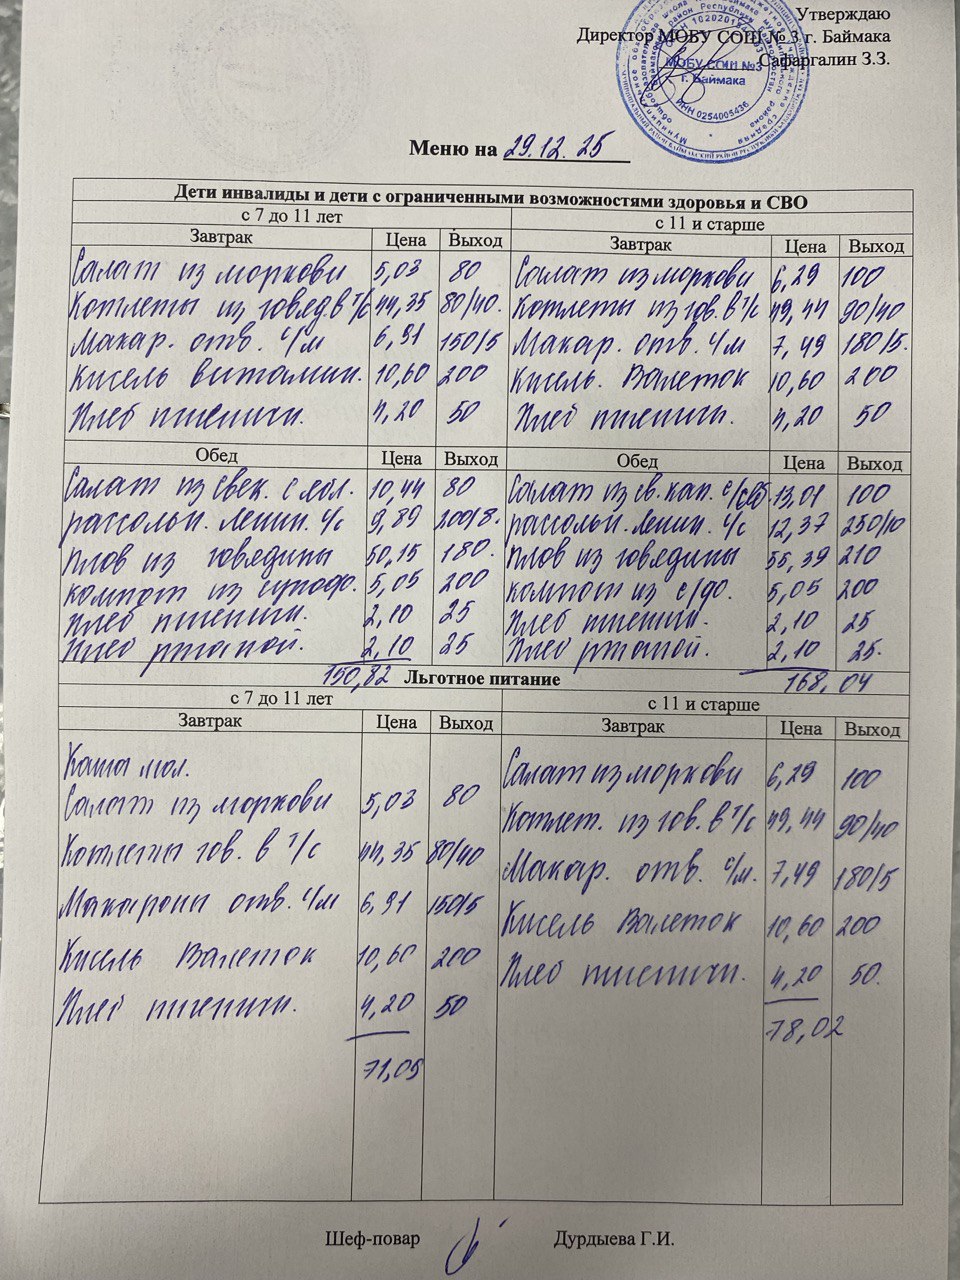 Утверждаю
Директор МОБУ СОШ № 3 г. Баймака
Сафаргалин З.З.
МОБУ СОШ №3
г. Баймака
ИНН 0254005436
Меню на 29.12.25
Дети инвалиды и дети с ограниченными возможностями здоровья и СВО
с 7 до 11 лет с 11 и старше
Завтрак Цена Выход Завтрак Цена Выход
Салат из моркови 5,03 80 Салат из моркови 6,29 100
Котлеты из говяд. в т/с 44,35 80/40. Котлеты из гов. в т/с 49,44 90/40
Макар. отв. с/м 6,91 150/5 Макар. отв. с/м 7,49 180/5.
Кисель витамин. 10,60 200 Кисель. Валеток 10,60 200
Хлеб пшеничн. 4,20 50 Хлеб пшеничн. 4,20 50
Обед Цена Выход Обед Цена Выход
Салат из свек. с сол. 10,44 80 Салат из св. кап. с/ 13,01 100
рассольн. Ленин. с/с 9,89 200/8. рассольн. Ленин. с/с 12,37 250/10
Плов из говядины 50,15 180. Плов из говядины 55,39 210
компот из сухофр. 5,05 200 компот из с/фр. 5,05 200
Хлеб пшеничн. 2,10 25 Хлеб пшеничн. 2,10 25
Хлеб ржаной. 2,10 25 Хлеб ржаной. 2,10 25.
150,82 168,04
Льготное питание
с 7 до 11 лет с 11 и старше
Завтрак Цена Выход Завтрак Цена Выход
Каша мол.
Салат из моркови 5,03 80 Салат из моркови 6,29 100
Котлеты гов. в т/с 44,35 80/40 Котлет. из гов. в т/с 49,44 90/40
Макароны отв. с/м 6,91 150/5 Макар. отв. с/м. 7,49 180/5
Кисель Валеток 10,60 200 Кисель Валеток 10,60 200
Хлеб пшеничн. 4,20 50 Хлеб пшеничн. 4,20 50.
71,09 78,02
Шеф-повар Дурдыева Г.И.